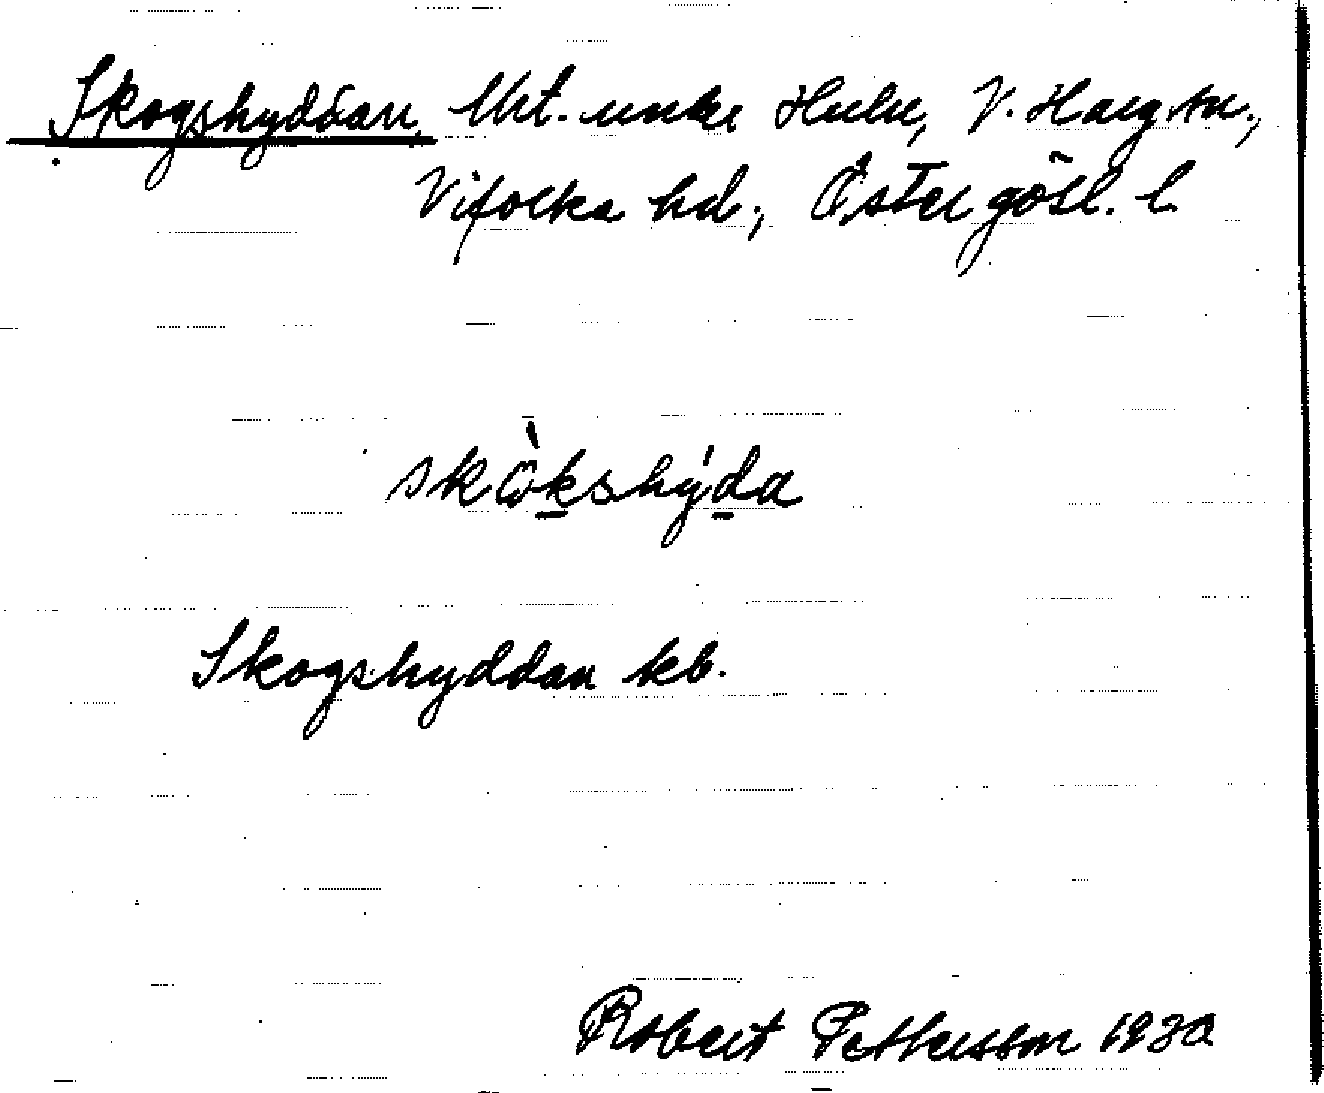 Skogshyddan, Uht. under Hulu, V. Harg sn.,
Vifolka hd., Östergötl. l.
skòkshy̍da
Skogshyddan kb.
Robert Pettersson 1930